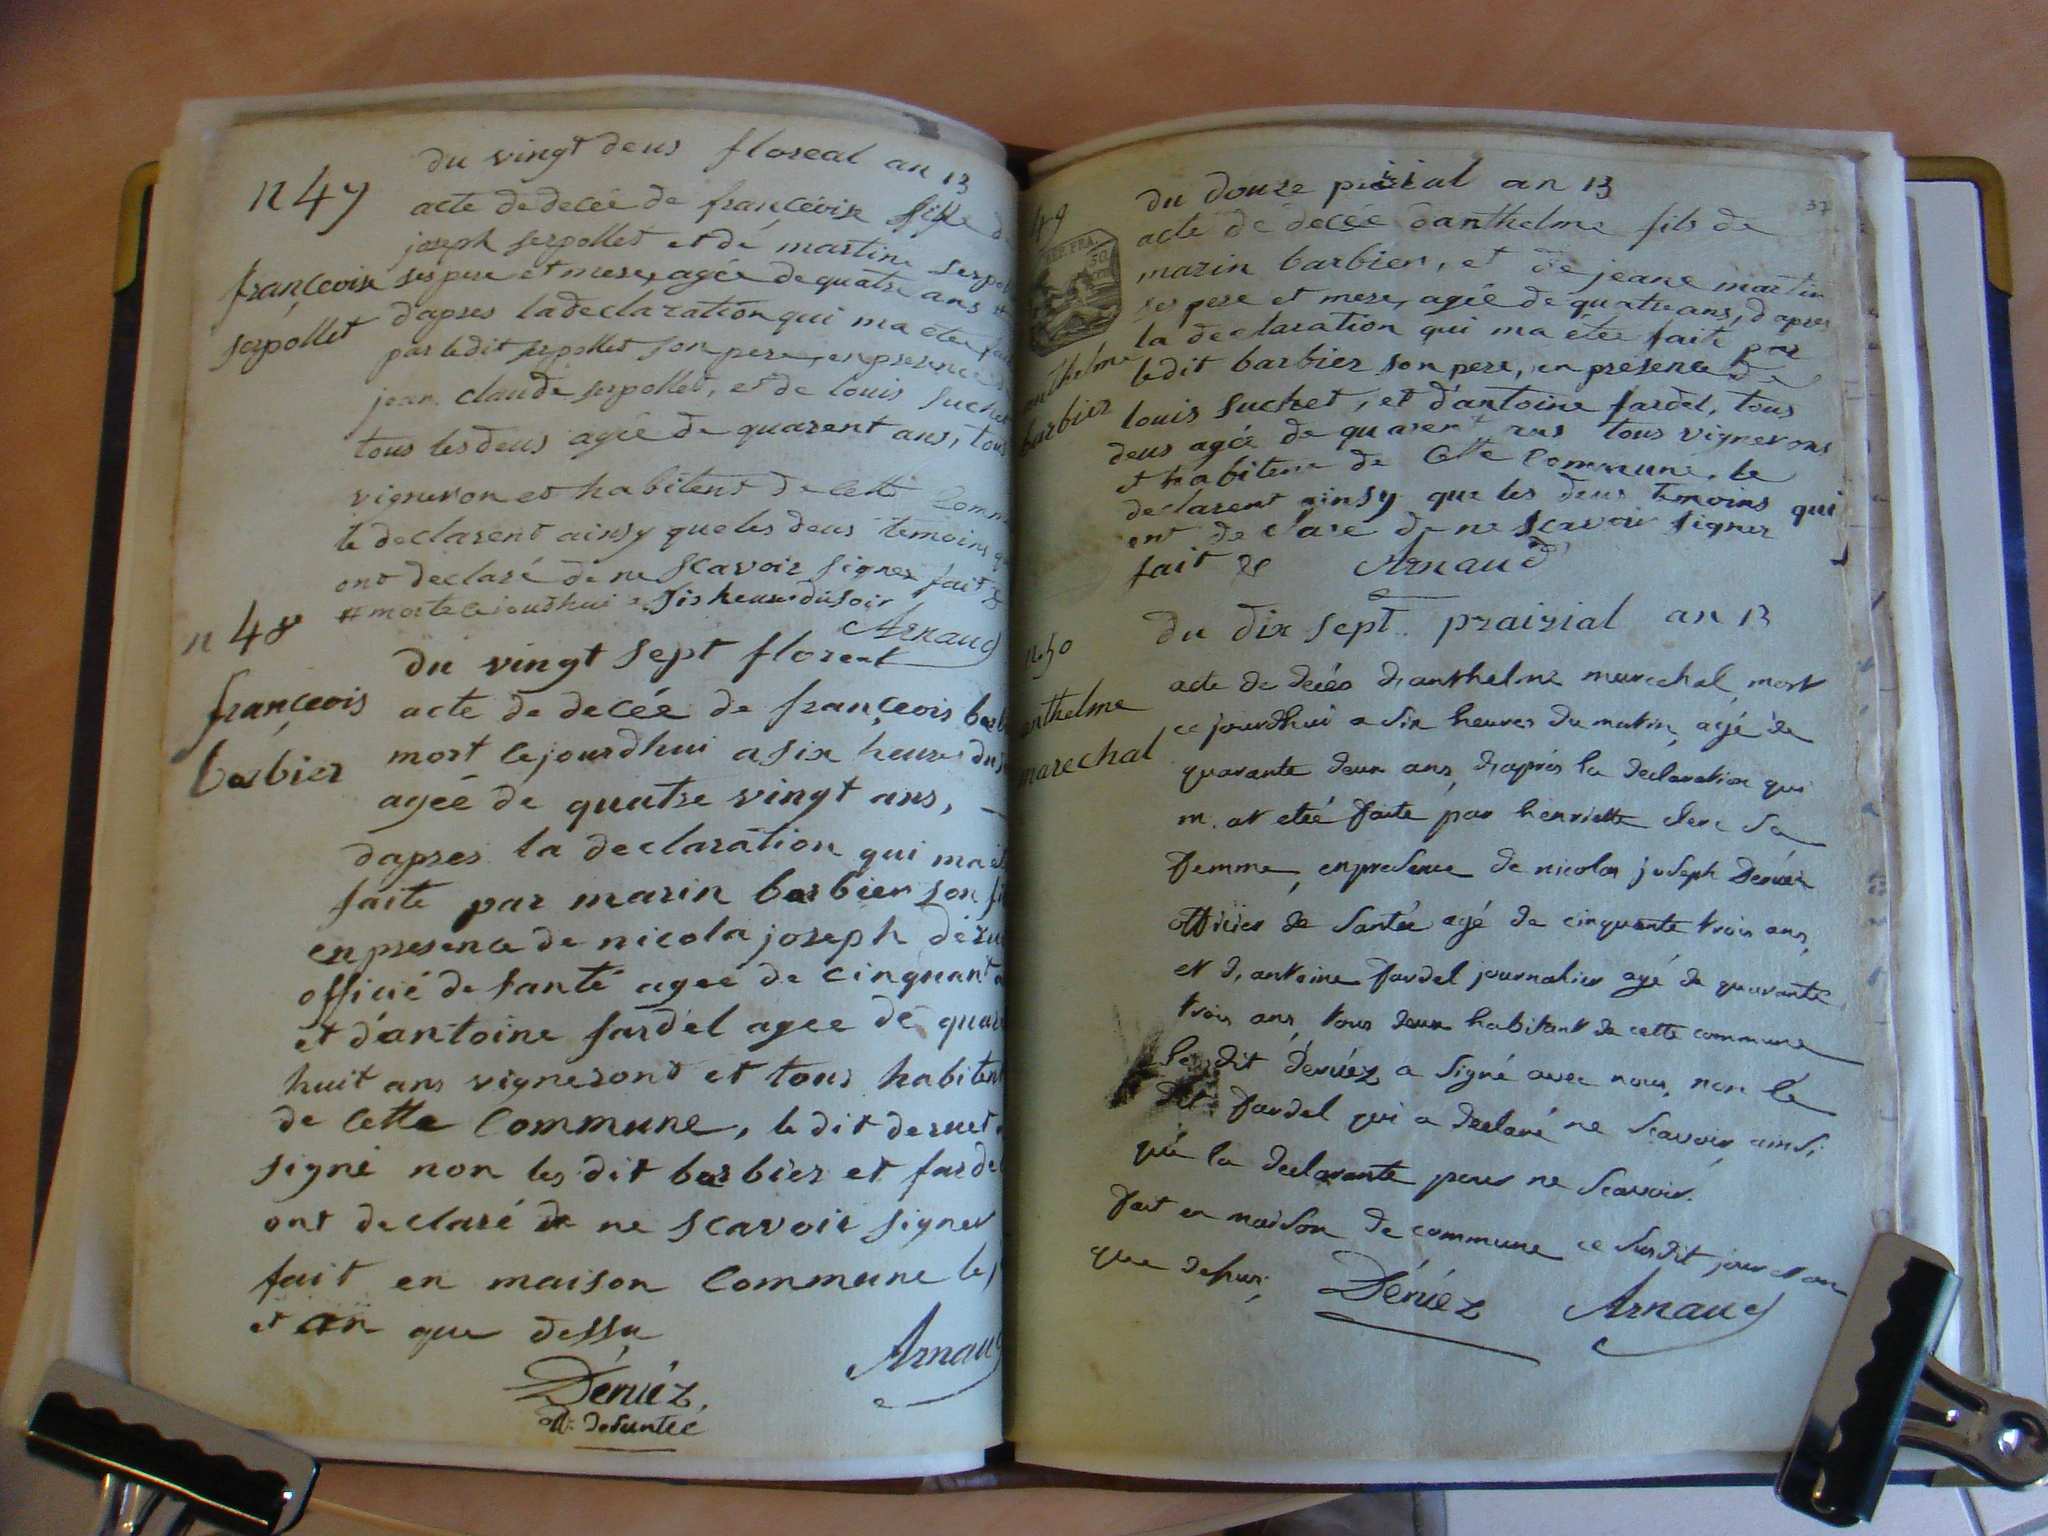 du vingt deus floreal an 13
n 47
acte de decée de françeoise fille de
joseph serpollet et de martine serpol
françeoise
ses pere et mere, agée de quatre ans #
serpollet
dapres la declaration qui ma etée faite
par le dit serpollet son pere, en presence de
jean claude serpollet, et de louis suchet
tous les deus agée de quarent ans, tous
vigneron et habitent de cette Comm
le declarent ainsy que les deus temoins qui
ont declaré de ne scavoir signer fait &
# morte ce jourdhui a sis heure du soir
Arnaud
n 48
du vingt sept floreal
françeois
barbier
acte de decée de françeois barbi
mort cejourdhui a six heures du
agée de quatre vingt ans,
dapres la declaration qui ma et
faite par marin barbier son fi
en presence de nicola joseph déru
officié de santé agée de cinquant
et d'antoine fardel agee de quar
huit ans vigneront et tous habitent
de cette Commune, le dit deruet
signé non les dit barbier et fardel
ont declaré de ne scavoir signer
fait en maison Commune le j
et an que dessu
Déruéz,
off: de santée
Arnaud
37
du douze prairial an 13
49
acte de decée danthelme fils de
REP. FRA.
50
marin barbier, et de jeane martin
ses pere et mere, agée de quatre ans, d apres
la declaration qui ma étée faite par
anthelme
barbier
le dit barbier son pere, en présence de
louis suchet, et d'antoine fardel, tous
deus agée de quarent ans tous vignerons
et habitene de Cette Commune, le
declarent ainsy que les deus temoins qui
ont declaré de ne scavoir signer
fait & Arnaud
du dix sept prairial an 13
n 50
anthelme
marechal
acte de décés d,anthelme marechal mort
ce jourdhui a six heures du matin, agé de
quarante deux ans, d,aprés la declaration qui
m, at eteé faite par henriette clerc sa
femme, en presence de nicolas joseph Déruéz
officier de santée agé de cinquante trois ans,
et d, antoine fardel journalier agé de quarante
trois ans, tous deux habitant de cette commune
le, dit déruéz a signé avec nous, non le
dit fardel qui a declaré ne scavoir ainsi
que la declarante pour ne scavoir.
fait en maison de commune ce susdit jour et an
que dessus,
Déruéz Arnaud